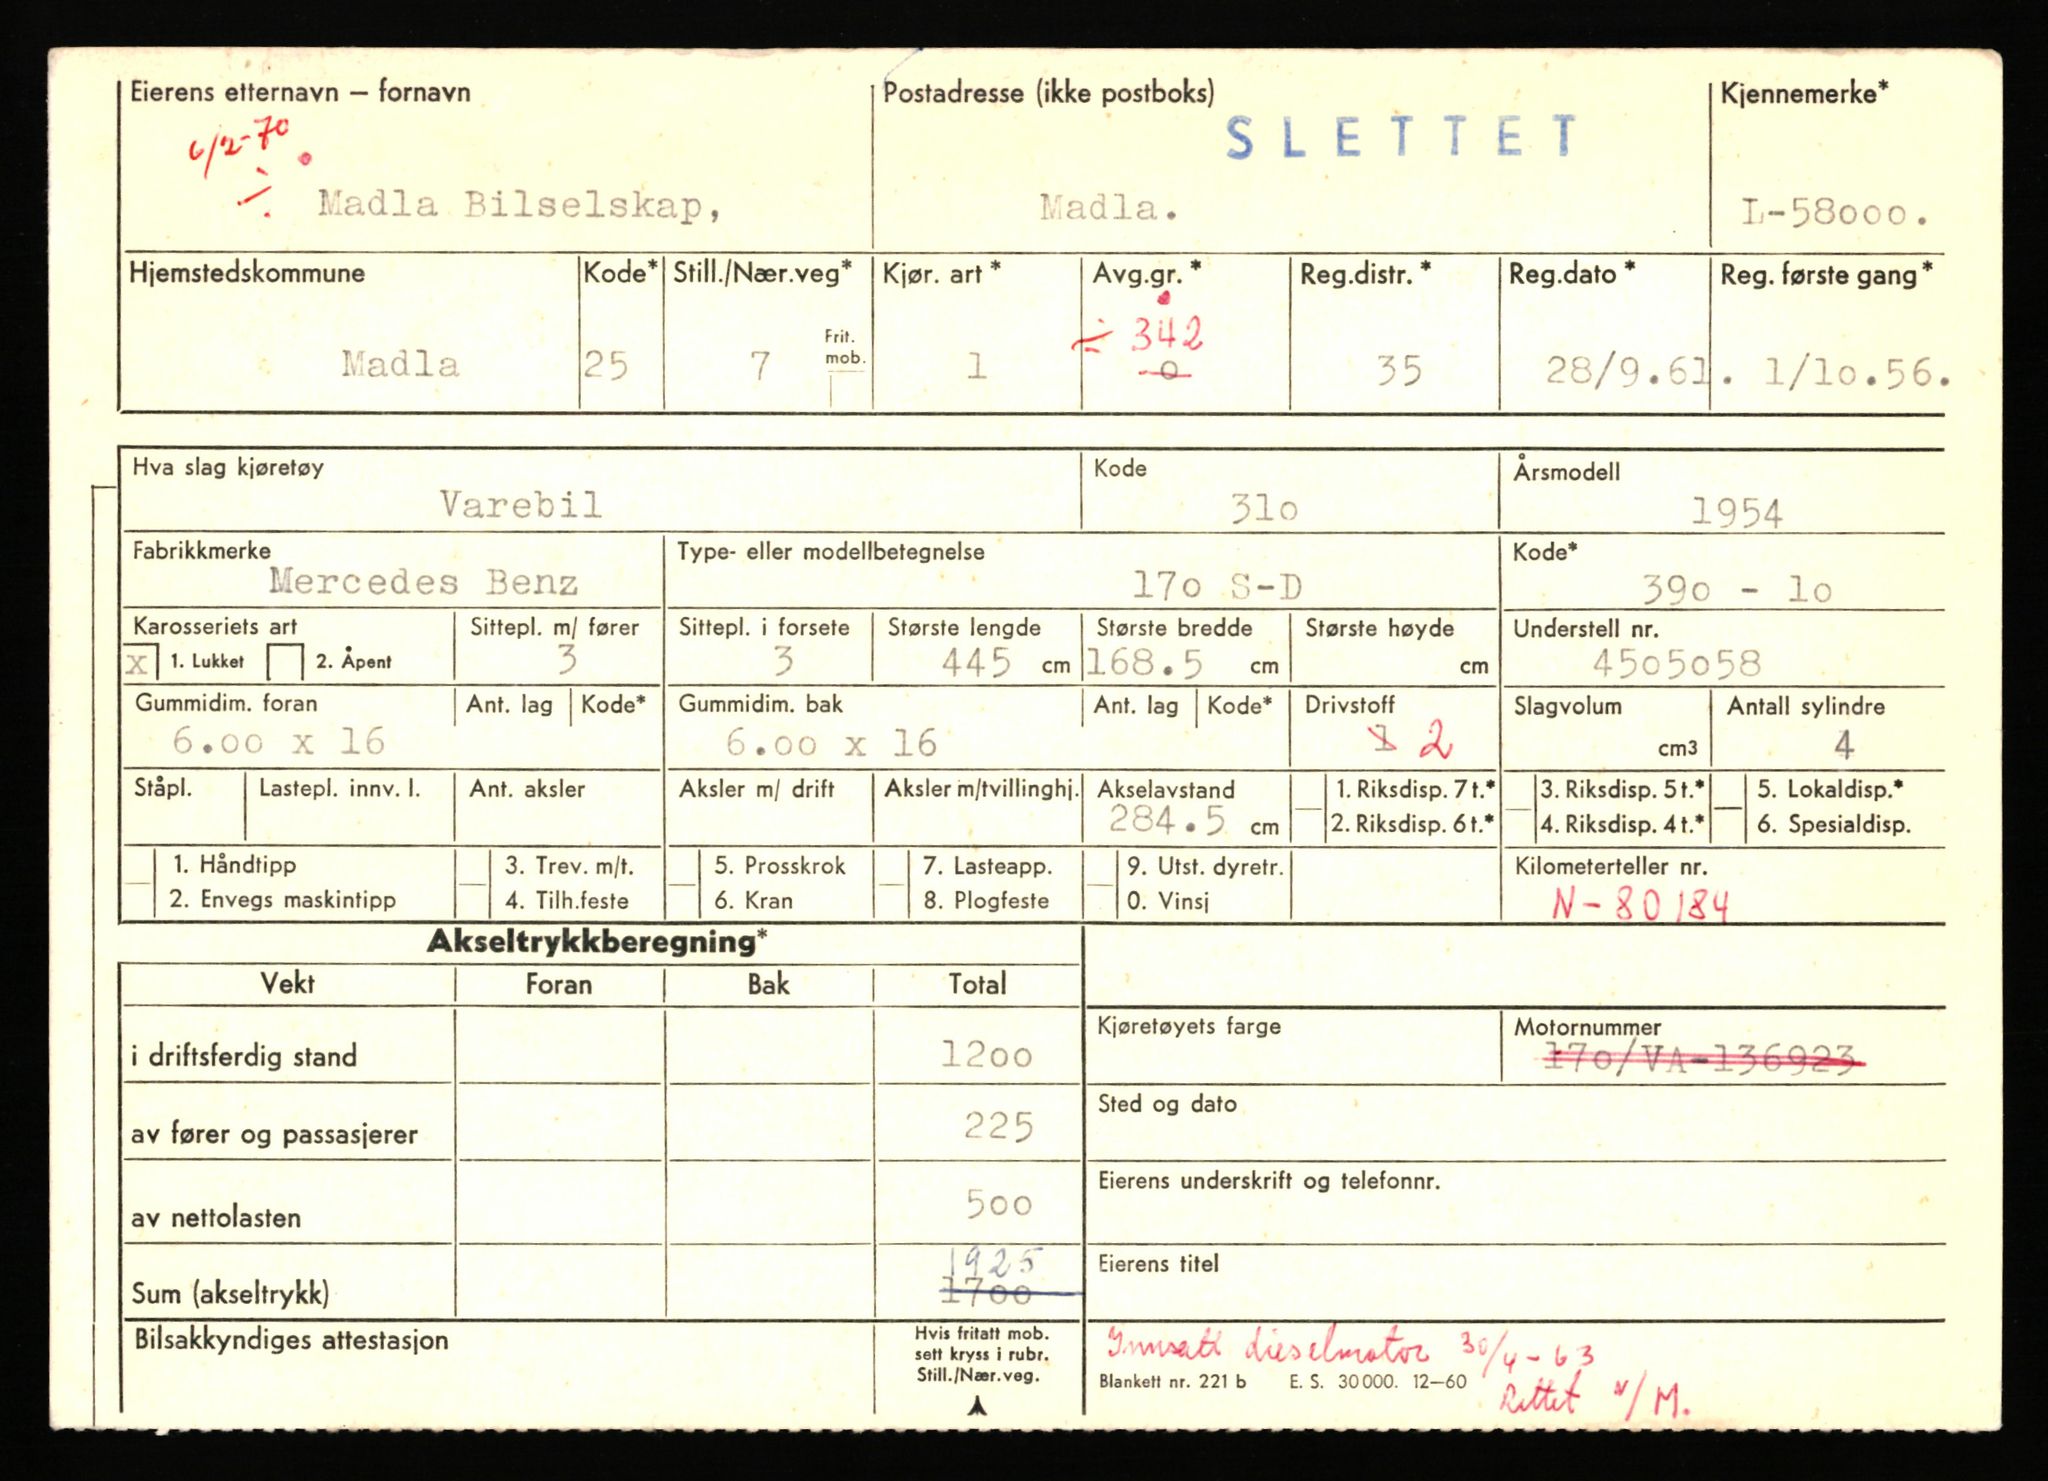 Eierens etternavn — fornavn Postadresse (ikke postboks) Kjennemerke*
6/2-70 SLETTET
Madla Bilselskap, Madla. L-58ooo.
Hjemstedskommune Kode* Still./Nær.veg* Kjør. art* Avg.gr.* Reg.distr.* Reg.dato* Reg. første gang*
÷ 342
Frit. mob.
Madla 25 7 1 o 35 28/9.61. 1/1o.56.
Hva slag kjøretøy Kode Årsmodell
Varebil 31o 1954
Fabrikkmerke Type- eller modellbetegnelse Kode*
Mercedes Benz 17o S-D 39o - 1o
Karosseriets art Sittepl. m/ fører Sittepl. i forsete Største lengde Største bredde Største høyde Understell nr.
x 1. Lukket 2. Åpent 3 3 445 cm 168.5 cm cm 45o5o58
Gummidim. foran Ant. lag Kode* Gummidim. bak Ant. lag Kode* Drivstoff Slagvolum Antall sylindre
6.oo x 16 6.oo x 16 1 2 cm3 4
Ståpl. Lastepl. innv. l. Ant. aksler Aksler m/ drift Aksler m/tvillinghj. Akselavstand 1. Riksdisp. 7 t.* 3. Riksdisp. 5 t.* 5. Lokaldisp.*
284.5 cm 2. Riksdisp. 6 t.* 4. Riksdisp. 4 t.* 6. Spesialdisp.
1. Håndtipp 3. Trev. m/t. 5. Prosskrok 7. Lasteapp. 9. Utst. dyretr. Kilometerteller nr.
2. Envegs maskintipp 4. Tilh.feste 6. Kran 8. Plogfeste 0. Vinsj N-80184
Akseltrykkberegning*
Vekt Foran Bak Total
Kjøretøyets farge Motornummer
i driftsferdig stand 12oo 17o/VA-136923
Sted og dato
av fører og passasjerer 225
Eierens underskrift og telefonnr.
av nettolasten 5oo
1925 Eierens titel
Sum (akseltrykk) 17oo
Bilsakkyndiges attestasjon Hvis fritatt mob. Innsatt dieselmotor 30/4-63
sett kryss i rubr.
Still./Nær.veg. Blankett nr. 221 b E. S. 30000. 12—60
Rettet N/M.